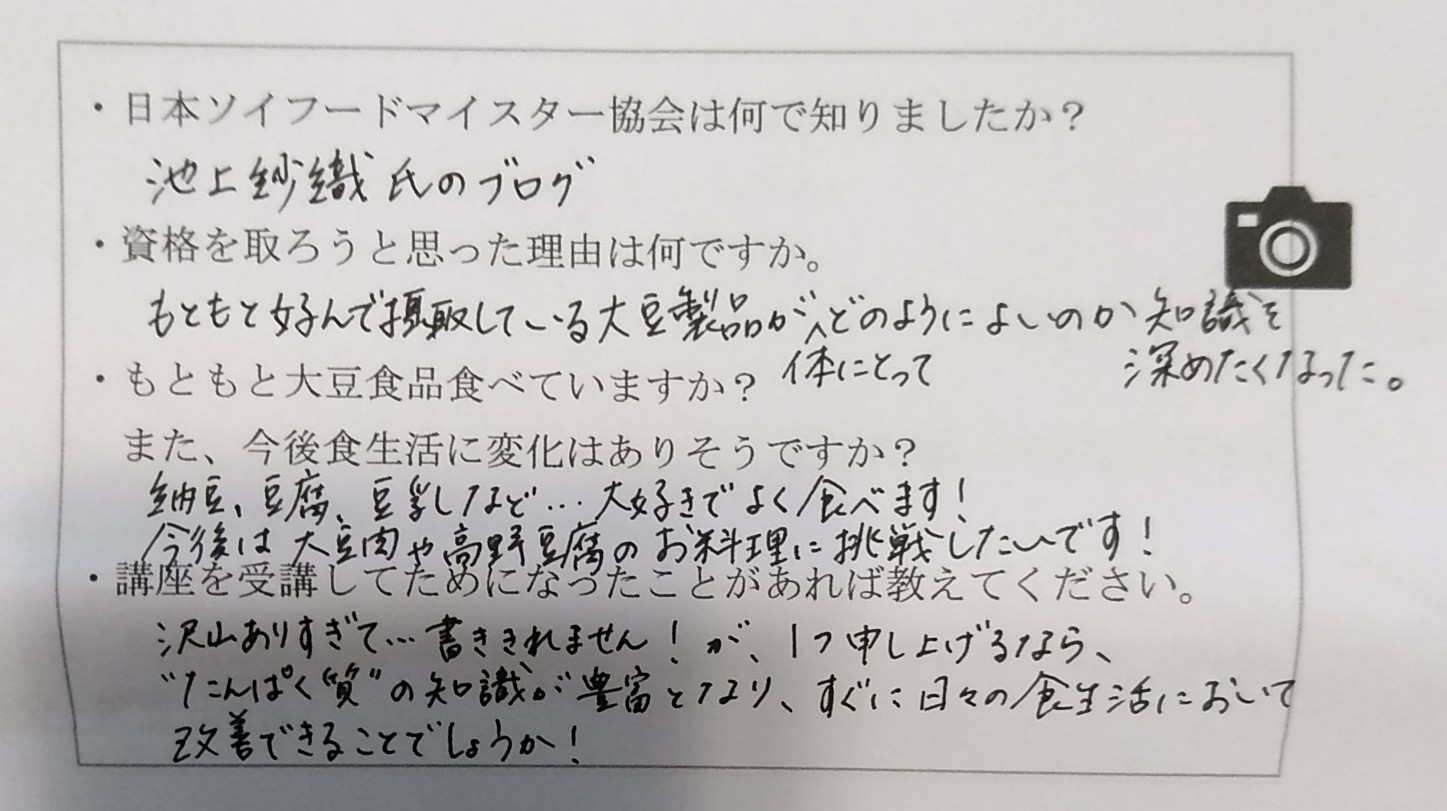 ・日本ソイフードマイスター協会は何で知りましたか？
池上紗織氏のブログ
・資格を取ろうと思った理由は何ですか。
もともと好んで摂取している大豆製品が体にとってどのようによいのか知識を
深めたくなった。
・もともと大豆食品食べていますか？
また、今後食生活に変化はありそうですか？
納豆、豆腐、豆乳など…大好きでよく食べます！
今後は大豆肉や高野豆腐のお料理に挑戦したいです！
・講座を受講してためになったことがあれば教えてください。
沢山ありすぎて…書ききれません！が、1つ申し上げるなら、
"たんぱく質"の知識が豊富となり、すぐに日々の食生活において
改善できることでしょうか！